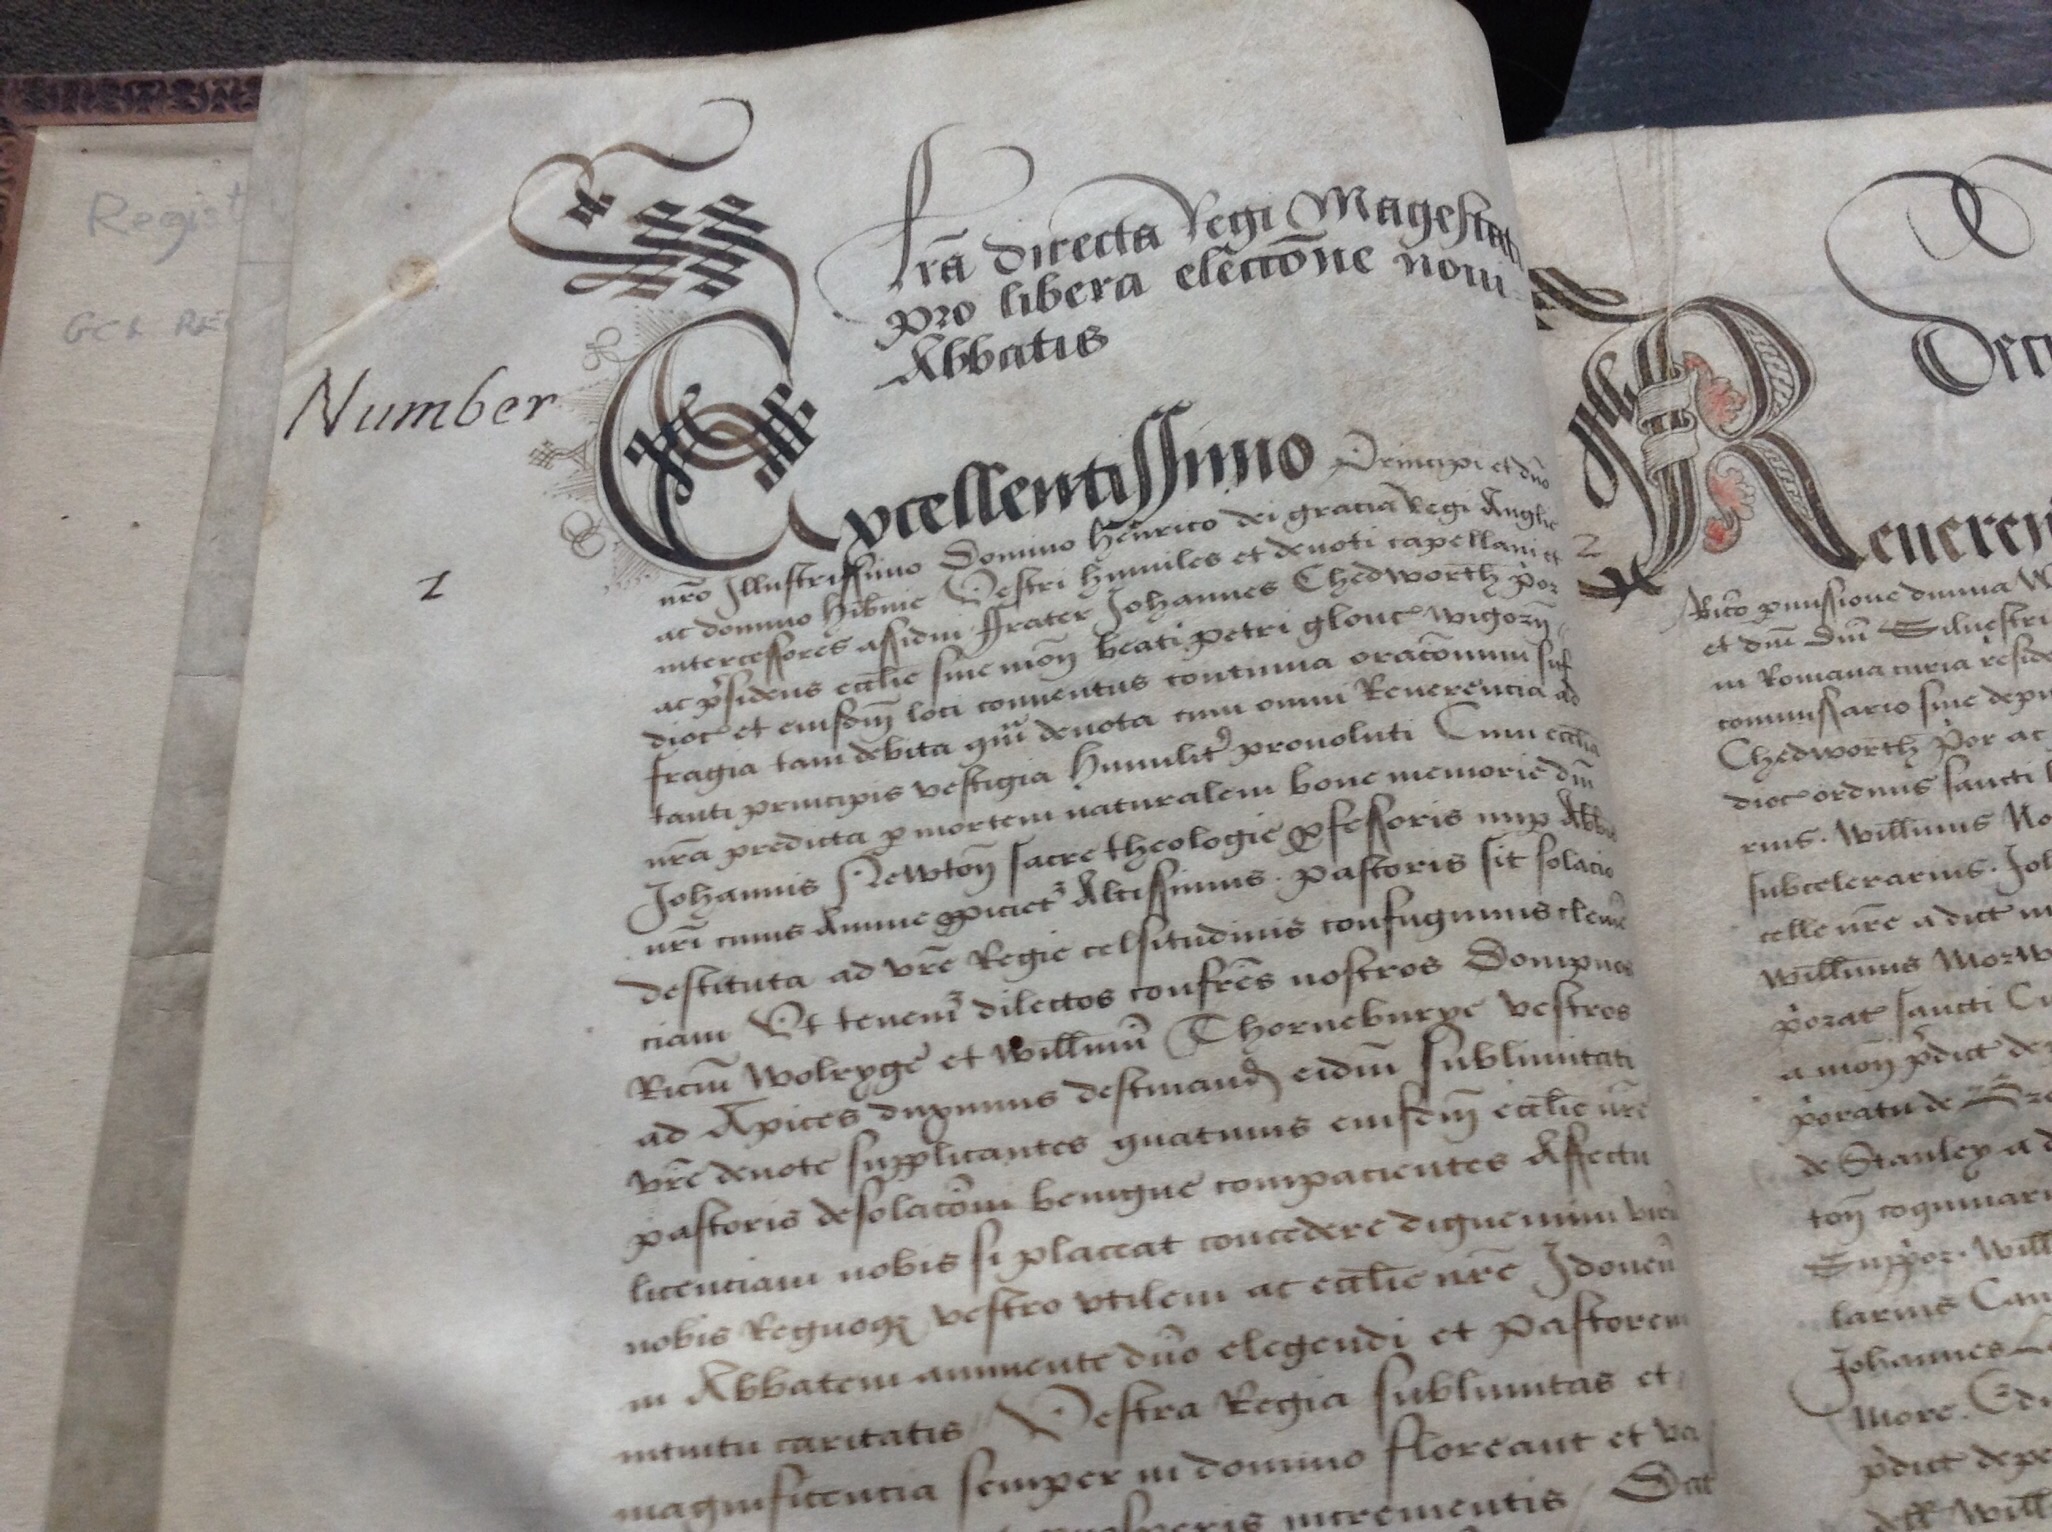 Regist
GCL RE
Number
1
lr̃a directa Regi Magestati
pro libera elecc̃one noui
Abbatis
Excellentissimo Principi et dño
nr̃o Illustrissimo Domino henrico dei gracia Regi Anglie
ac domino hib̃nie Vestri humiles et deuoti capellani et
intercessores assidui ffrater Johannes Chedworth p̃or
ac p̃sidens eccl̃ie siue moñ beati petri glouc̃ wigorñ
dioc̃ et eiusdm̃ loci conuentus continua orac̃onum suf
fragia tam debita qm̃ deuota cum omni Reuerencia ad
tanti principis vestigia humilit̃ prouoluti Cum eccl̃ia
nr̃a predicta p mortem naturalem bone memorie dm̃
Johannis Newtoñ sacre theologie pfessoris nup Abb̃is
nr̃i cuius Anime ppiciet̃ Altissimus . pastoris sit solacio
destituta ad vr̃e Regie celsitudinis confugimus clemẽ
ciam Vt tenem̃ dilectos confr̃es nostros Dompnos
Ricm̃ Wolryge et Willm̃ Thorneburye vestros
ad Apices duximus destinand̃ eidm̃ sublimitati
vr̃e deuote supplicantes quatinus eiusdm̃ eccl̃ie nr̃e
pastoris desolac̃oni benigne compacientes Affectu
licenciam nobis si placeat concedere dignemini virũ
nobis Regnoqꝫ vestro vtilem ac eccl̃ie nr̃e Idoneũ
in Abbatem annuente dño elegendi et Pastorem
intuitu caritatis / Vestra Regia sublimitas et
magnificencia semper in domino floreant et va
prosperis incrementis / Dat
2
Reueren
et dm̃ Dm̃ Siluestri
in Romana curia reside
comissario siue depu
Chedworth p̃or ac
dioc̃ ordinis sancti
rius . Willmus
subcelerarius . Joh
celle nr̃e a dict
Willmus Morw
p̃orat̃ sancti
a moñ p̃dict de
p̃oratu de
de Stanley a
toñ cogninari
Supp̃or . Will
larius Can
Johannes
More . Edu
p̃dict depe